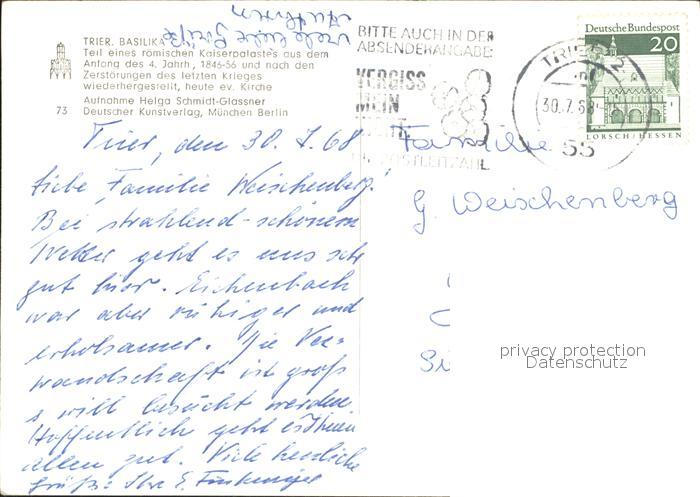 viele liebe Grüße
TRIER. BASILIKA
Teil eines römischen Kaiserpalastes aus dem
Anfang des 4. Jahrh, 1846-56 und nach den
Zerstörungen des letzten Krieges
wiederhergestellt, heute ev. Kirche
Aufnahme Helga Schmidt-Glassner
73 Deutscher Kunstverlag, München Berlin
BITTE AUCH IN DER
ABSENDERANGABE
VERGISS
MEIN
POSTLEITZAHL
TRIER 2
30.7.68
55
Deutsche Bundespost
20
LORSCH/HESSEN
Trier, den 30. 7. 68
Liebe Familie Weischenberg.
Bei strahlend-schönem
Wetter geht es uns sehr
gut hier. Eichenbach
war aber ruhiger und
erholsamer. Die Ver-
wandschaft ist groß
s will besucht werden
Hoffentlich geht es Ihnen
allen gut. Viele herzliche
Grüße: Ihre E.
Familie
G. Weischenberg
privacy protection
Datenschutz